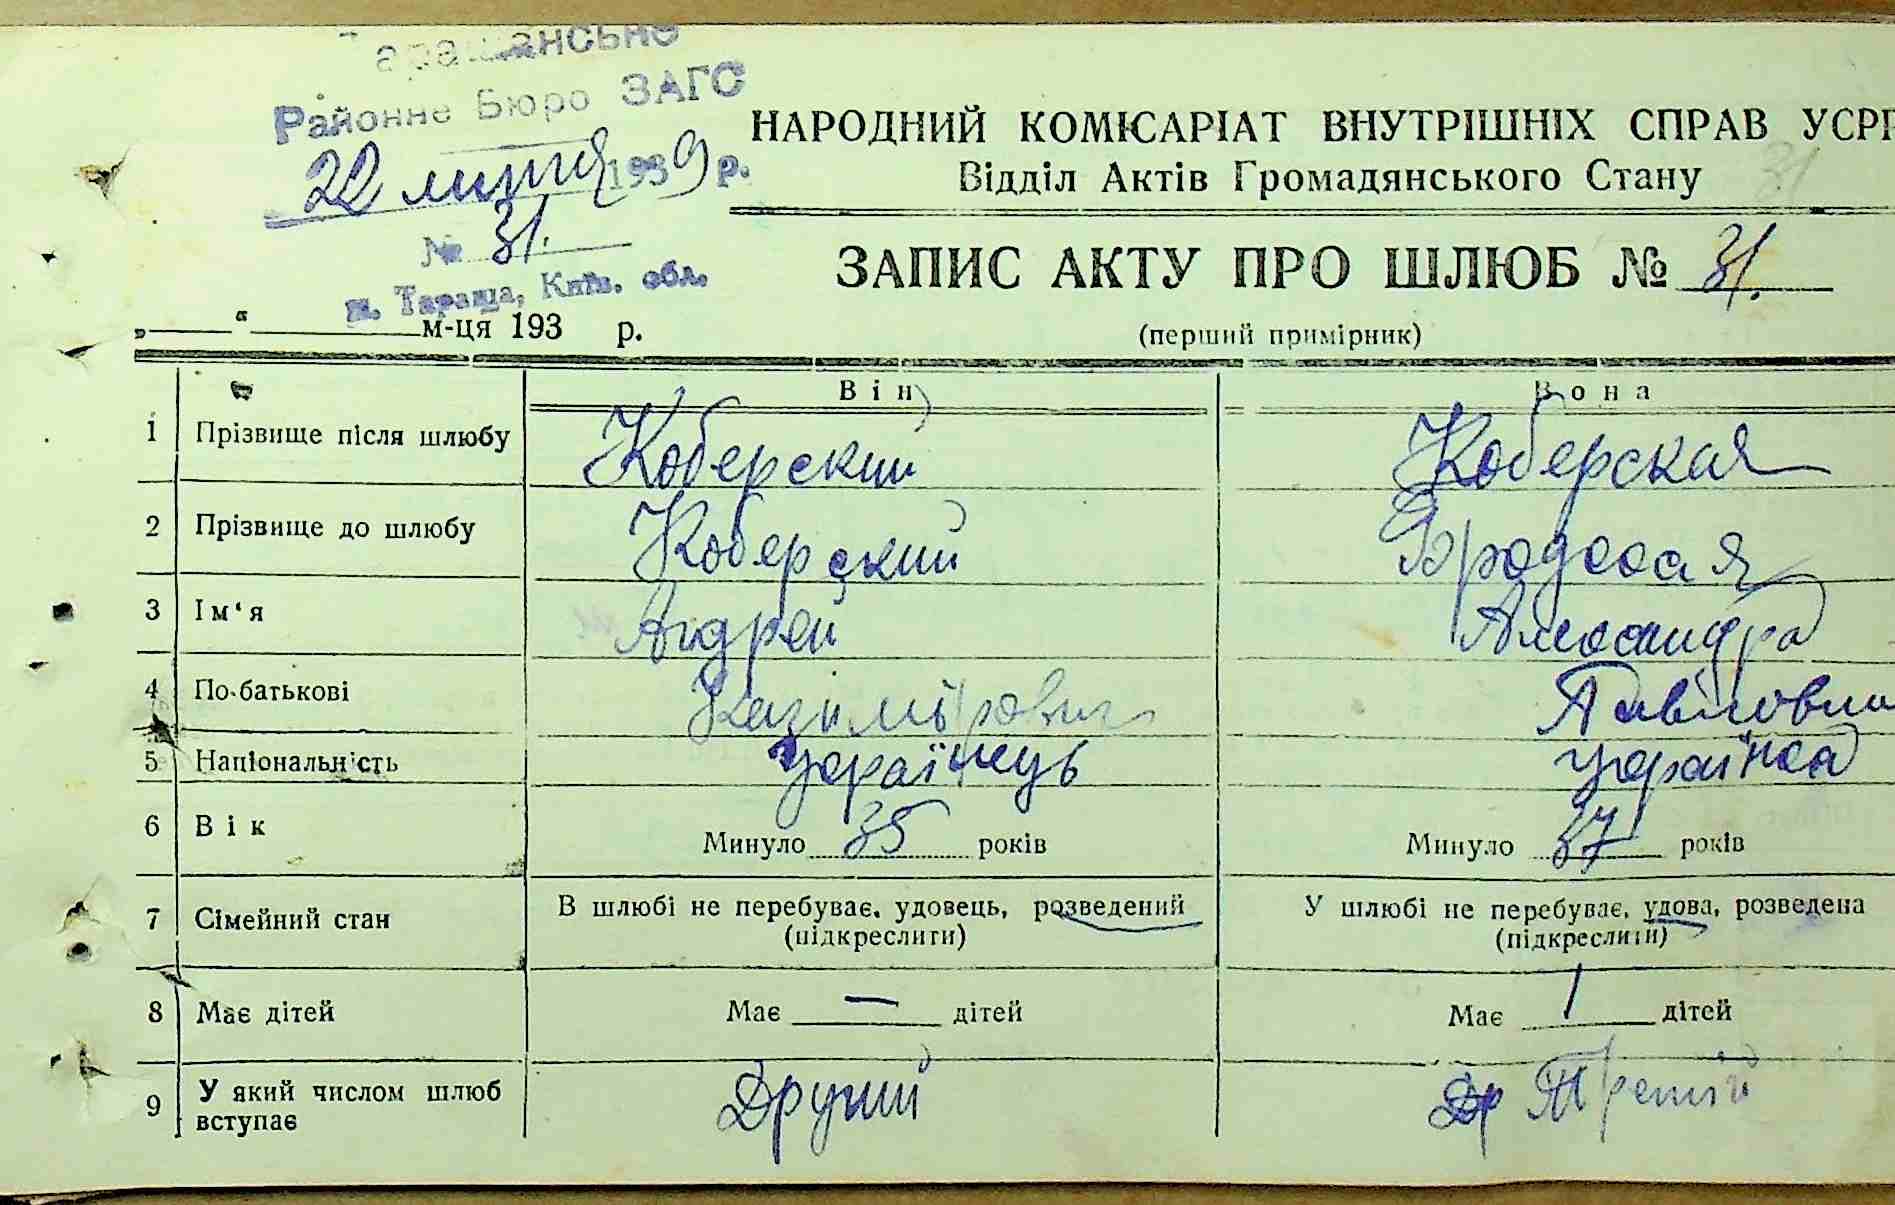 Таращанське
Районне Бюро ЗАГС
22 липня 1939 р.
№ 31.
м. Тараща, Київ. обл.
НАРОДНИЙ КОМІСАРІАТ ВНУТРІШНІХ СПРАВ УСРР
Відділ Актів Громадянського Стану 31
ЗАПИС АКТУ ПРО ШЛЮБ № 31.
„ “ м-ця 193 р.
(перший примірник)
Він Вона
1 Прізвище після шлюбу Коберский Коберская
2 Прізвище до шлюбу Коберский
3 Ім‘я Андрей Александра
4 По-батькові Казимірович Павловна
5 Національність українець українка
6 Вік Минуло 35 років Минуло 37 років
7 Сімейний стан В шлюбі не перебуває, удовець, розведений У шлюбі не перебуває, удова, розведена
(підкреслити) (підкреслити)
8 Має дітей Має — дітей Має 1 дітей
9 У який числом шлюб вступає Другий Др Третій